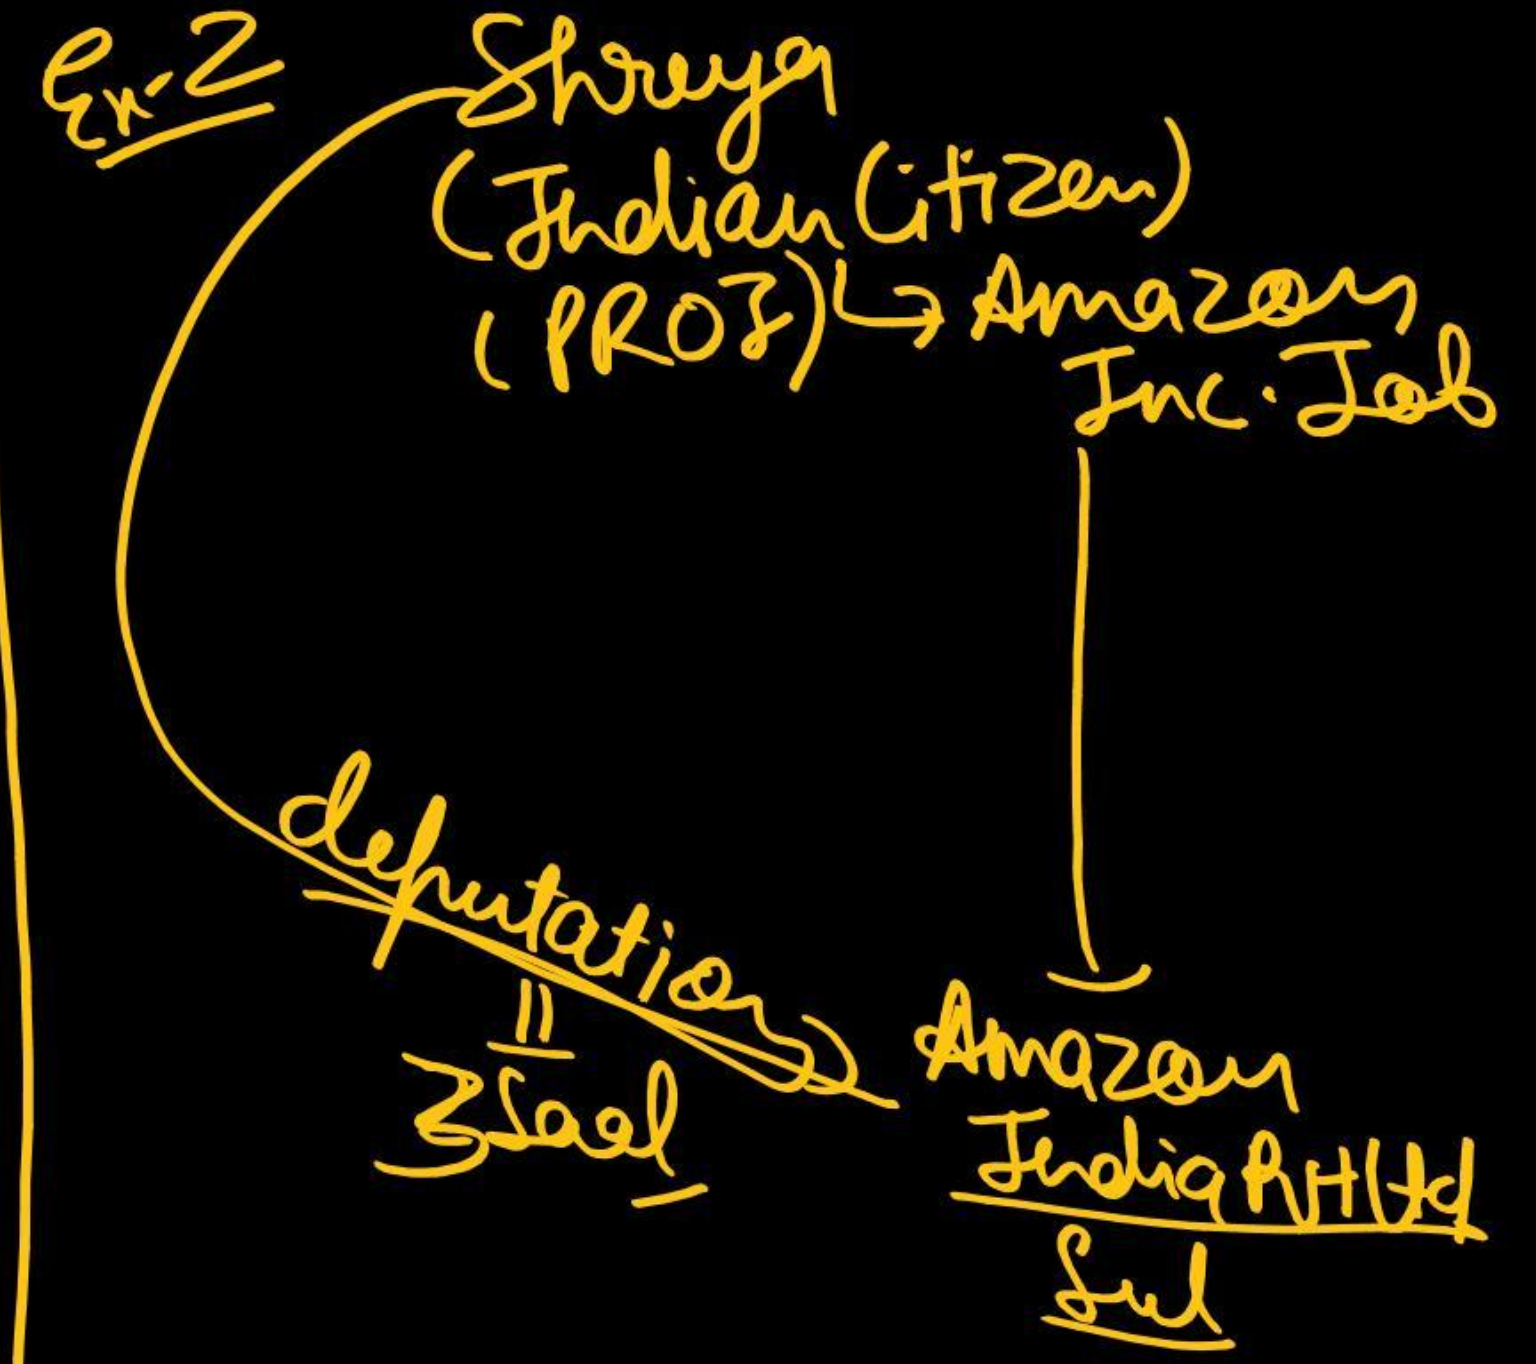 Ex-2
Shreya
(Indian Citizen)
(PROI) Amazon
Inc. Job
deputation
3 Saal
Amazon
India Pvt Ltd
Sub